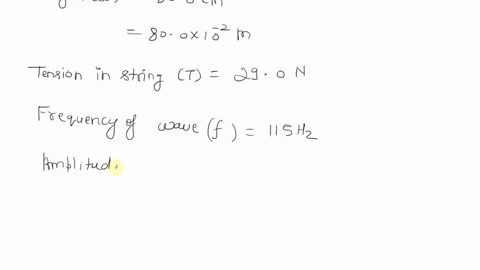 = 80.0 cm
= 80.0x10⁻² m
Tension in string (T) = 29.0 N
Frequency of wave (f) = 115 Hz
Amplitud